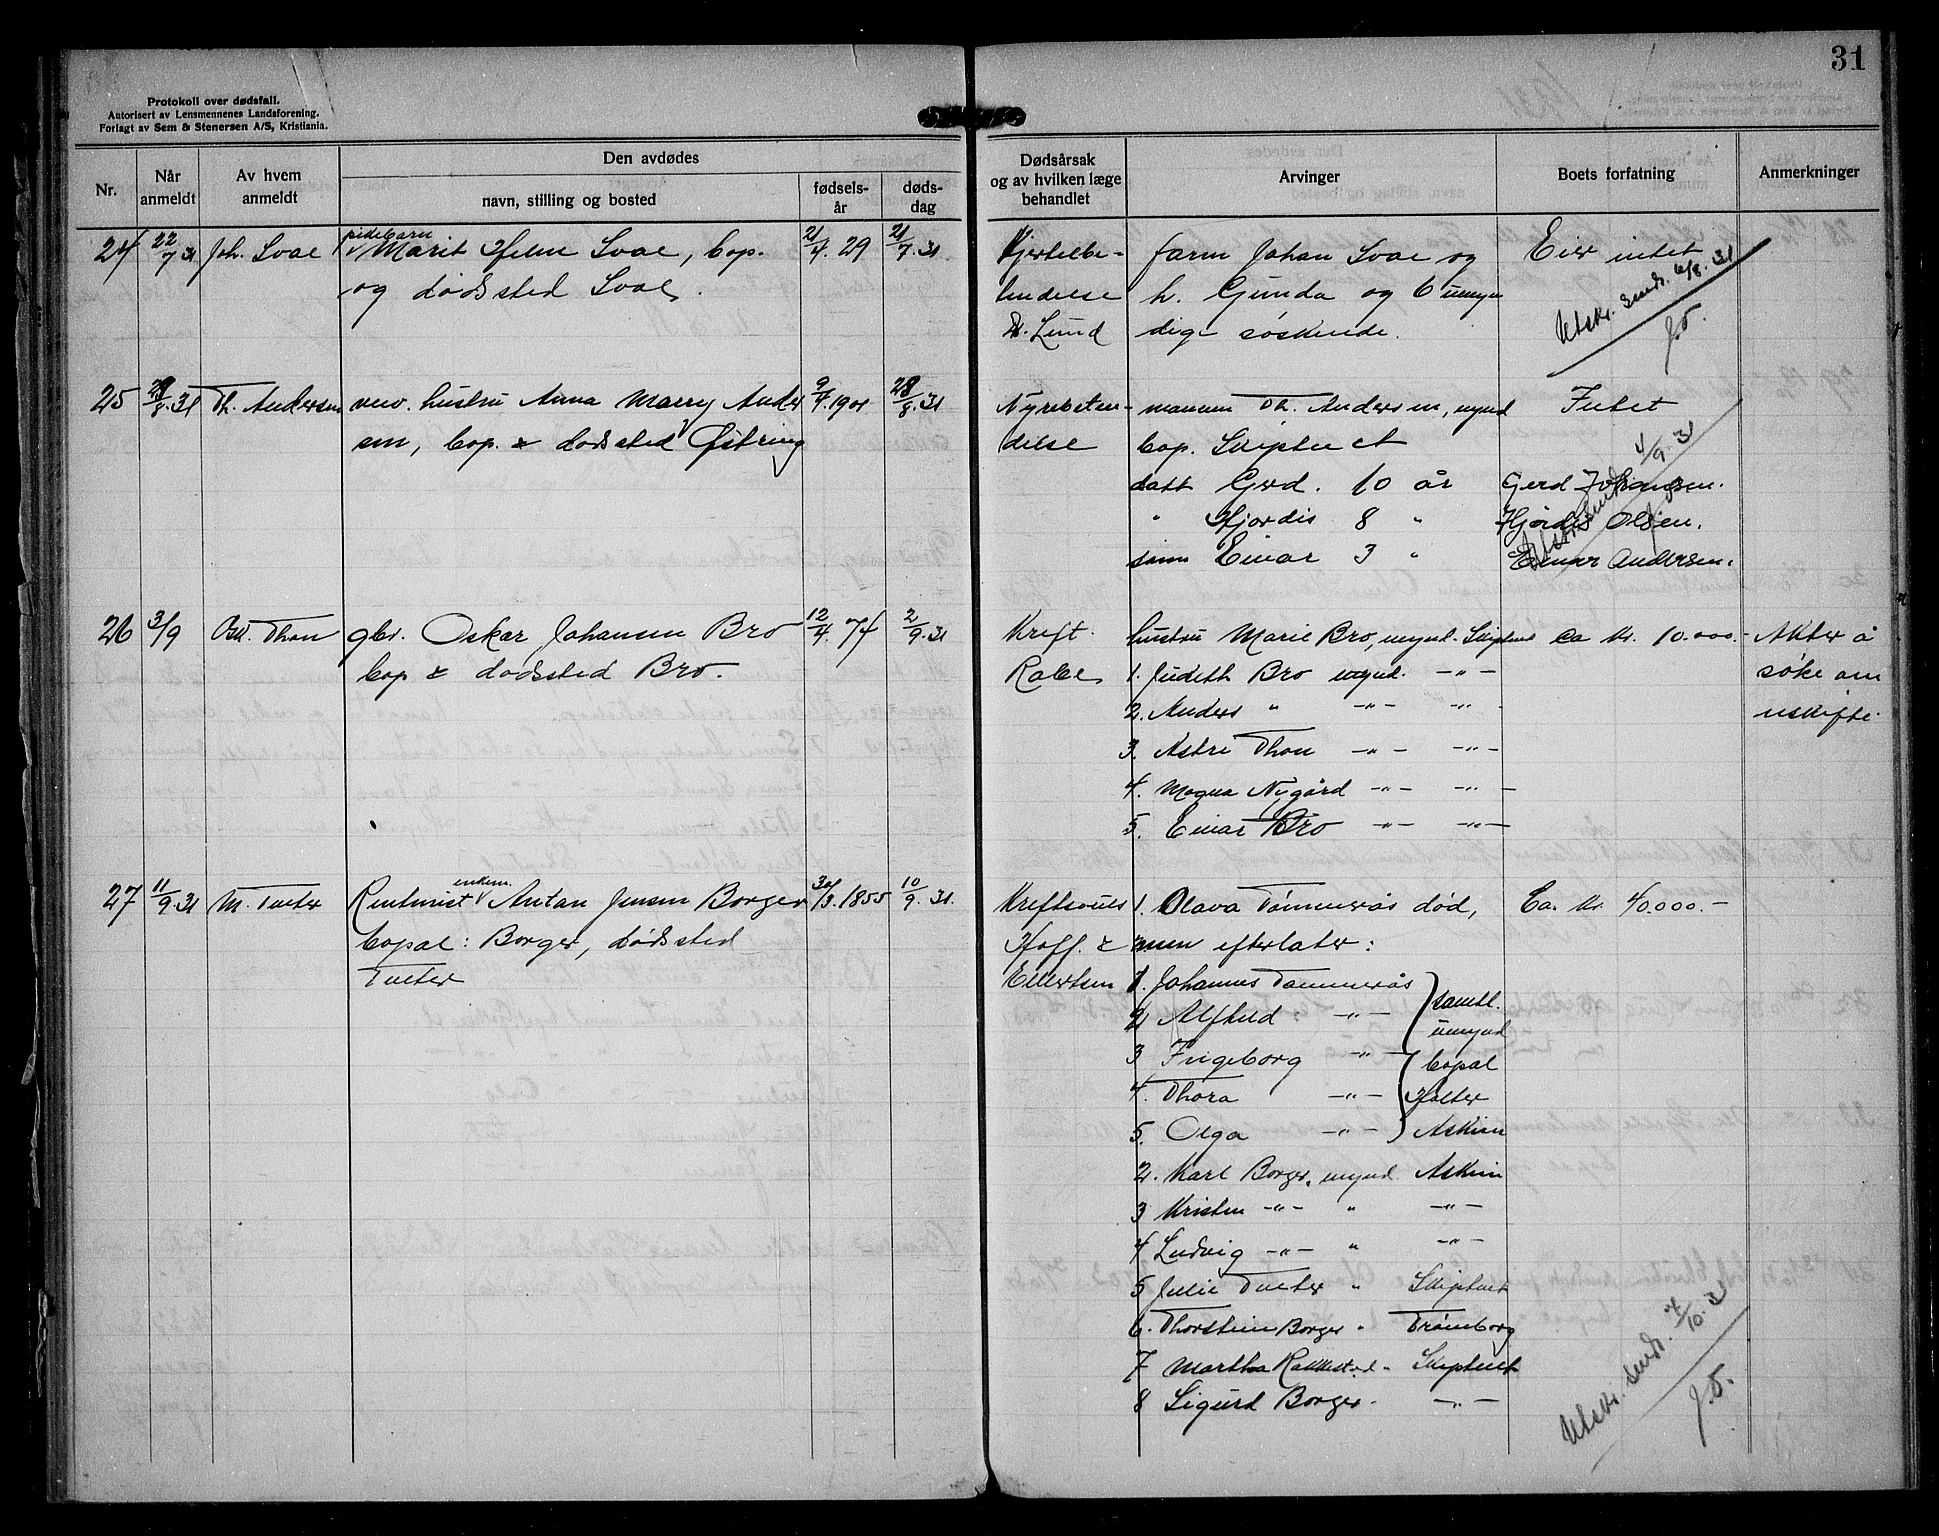 31
Protokoll over dødsfall.
Autorisert av Lensmennenes Landsforening.
Forlagt av Sem & Stenersen A/S, Kristiania.
Nr.
Når anmeldt
Av hvem anmeldt
Den avdødes
navn, stilling og bosted
fødsels-år
døds-dag
Dødsårsak og av hvilken læge behandlet
Arvinger
Boets forfatning
Anmerkninger
24 22/7 31 Joh. Svae pikebarn Marit Helen Svae, bop. 21/7. 29 21/7. 31
og dødssted Svae.
Hjertelbe-
tendelse
Dr. Lund
farm Johan Svae og
h. Gunda og 6 umyn
dige søskende.
Eier intet
Utskr. sendt. 6/8. 31
25 29/8. 31 Th. Andersen hustru Anna Marry Ander 9/7. 1901 28/8. 31
sen, bop. & dødssted Østring
Nyrebeten-
delse
mannen Th. Andersen, mynd
bop. Skiptvet
datt Gerd. 10 år
" Hjørdis 8 "
sønn Einar 3 "
Intet
4/9. 31
Gerd Johansen.
Hjørdis Olsen.
Einar Andersen.
26 3/9 Thon gbr. Oskar Johansen Bro 12/7. 74 2/9. 31
bop & dødssted Bro.
Kreft.
Rabe
hustru Marie Bro, mynd. Skiptvet
1. Judith Bro mynd. -"-
2. Anders " -"- -"-
3. Astri Thon -"- -"-
4. Magna Nygård -"- -"-
5. Einar Bro -"- -"-
Ca kr. 10.000.-
Akter å
søke om
uskifte.
27 11/9. 31 M. Tveter Rentenist enkem. Anton Jensen Borger 30/3. 1855 10/9. 31.
bopæl: Borger, dødssted
Tveter
Kreftsvulst
Hoff. &
Ellertsen
1. Olava Tømmerås død,
men efterlater:
1. Johannes Tømmerås
2 Alfhild -"-
3 Ingeborg -"-
4. Thora -"-
5. Olga -"-
samtl.
umynd
bopæl
Holter
Askim
2. Karl Borger, mynd. Askim
3 Kristen -"- " -"-
4 Ludvig -"- " -"-
5 Julie Tveter " Skiptvet
6. Thorstein Borger " Trømborg
7 Martha Rakkestad " Skiptvet
8 Sigurd Borger. -"-
Ca. kr. 40.000.-
Utskr. sendt. 4/10. 31